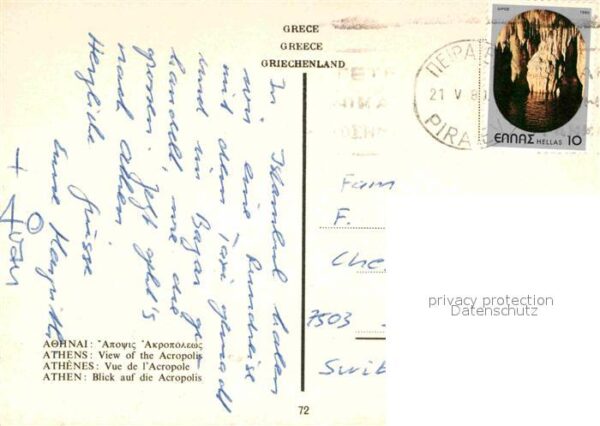 GRECE
GREECE
GRIECHENLAND
In Istanbul haben
wir eine Rundreise
mit dem Taxi gemacht
und im Bazar ge-
handelt, wie die
grossen. Jetzt geht's
nach Athen
Herzliche Grüsse
Eure
+
ΑΘΗΝΑΙ: Ἄποψις Ἀκροπόλεως
ATHENS: View of the Acropolis
ATHÈNES: Vue de l'Acropole
ATHEN: Blick auf die Acropolis
72
ΠΕΙΡΑ
21 V 8
PIRA
1980
ΕΛΛΑΣ HELLAS 10
Fam
F.
Che
7503
Swit
privacy protection
Datenschutz